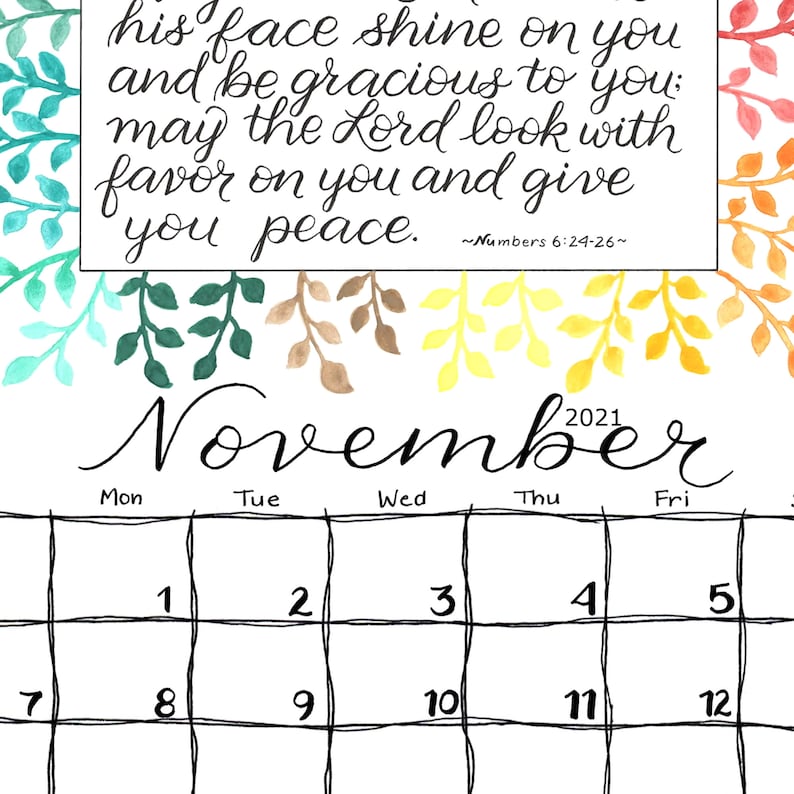 his face shine on you
and be gracious to you;
may the Lord look with
favor on you and give
you peace.
~Numbers 6:24-26~
November 2021
Mon Tue Wed Thu Fri
1 2 3 4 5
7 8 9 10 11 12